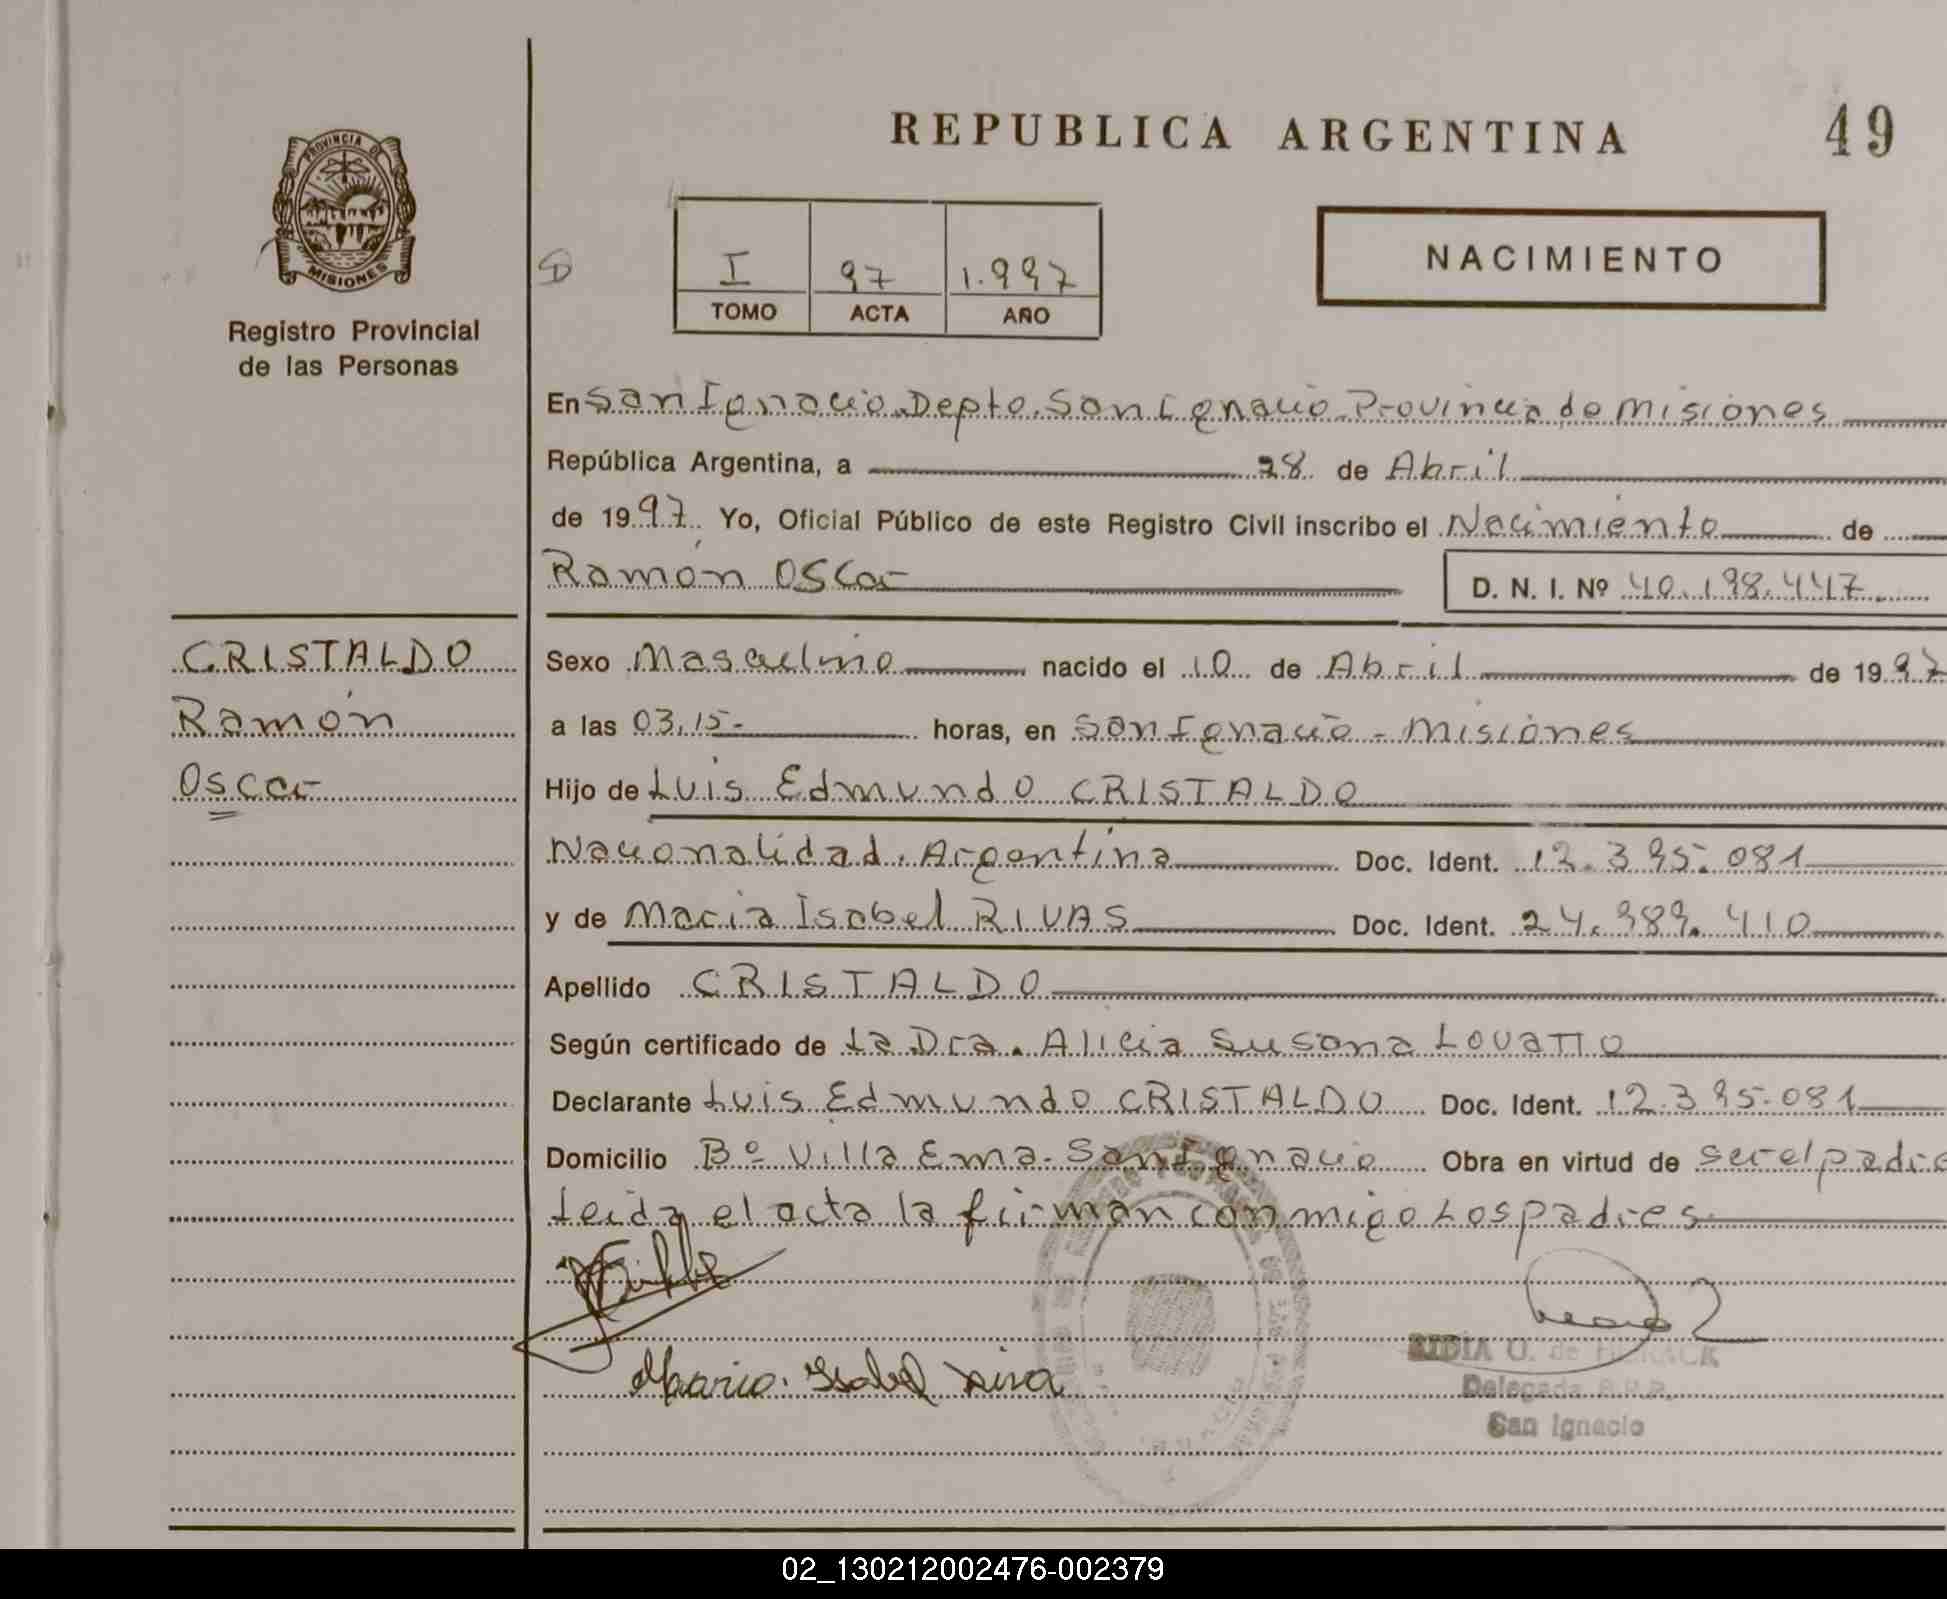 REPUBLICA ARGENTINA 49
PROVINCIA DE
MISIONES
Registro Provincial
de las Personas
I 97 1.997
TOMO ACTA AÑO
NACIMIENTO
En San Ignacio. Depto. San Ignacio. Provincia de Misiones
República Argentina, a 28 de Abril
de 1997 Yo, Oficial Público de este Registro Civil inscribo el Nacimiento de
Ramón Oscar D. N. I. Nº 40.198.447
CRISTALDO
Ramón
Oscar
Sexo Masculino nacido el 10 de Abril de 1997
a las 03,15- horas, en San Ignacio - Misiones
Hijo de Luis Edmundo CRISTALDO
Nacionalidad. Argentina Doc. Ident. 12.395.081
y de Maria Isabel RIVAS Doc. Ident. 24.989.410
Apellido CRISTALDO
Según certificado de La Dra. Alicia Susana Lovatto
Declarante Luis Edmundo CRISTALDO Doc. Ident. 12.395.081
Domicilio Bº Villa Ema. San Ignacio Obra en virtud de ser el padre
Leida el acta la firman conmigo Los padres.
Maria Isabel
de
Delegada R.P.P.
San Ignacio
02_130212002476-002379